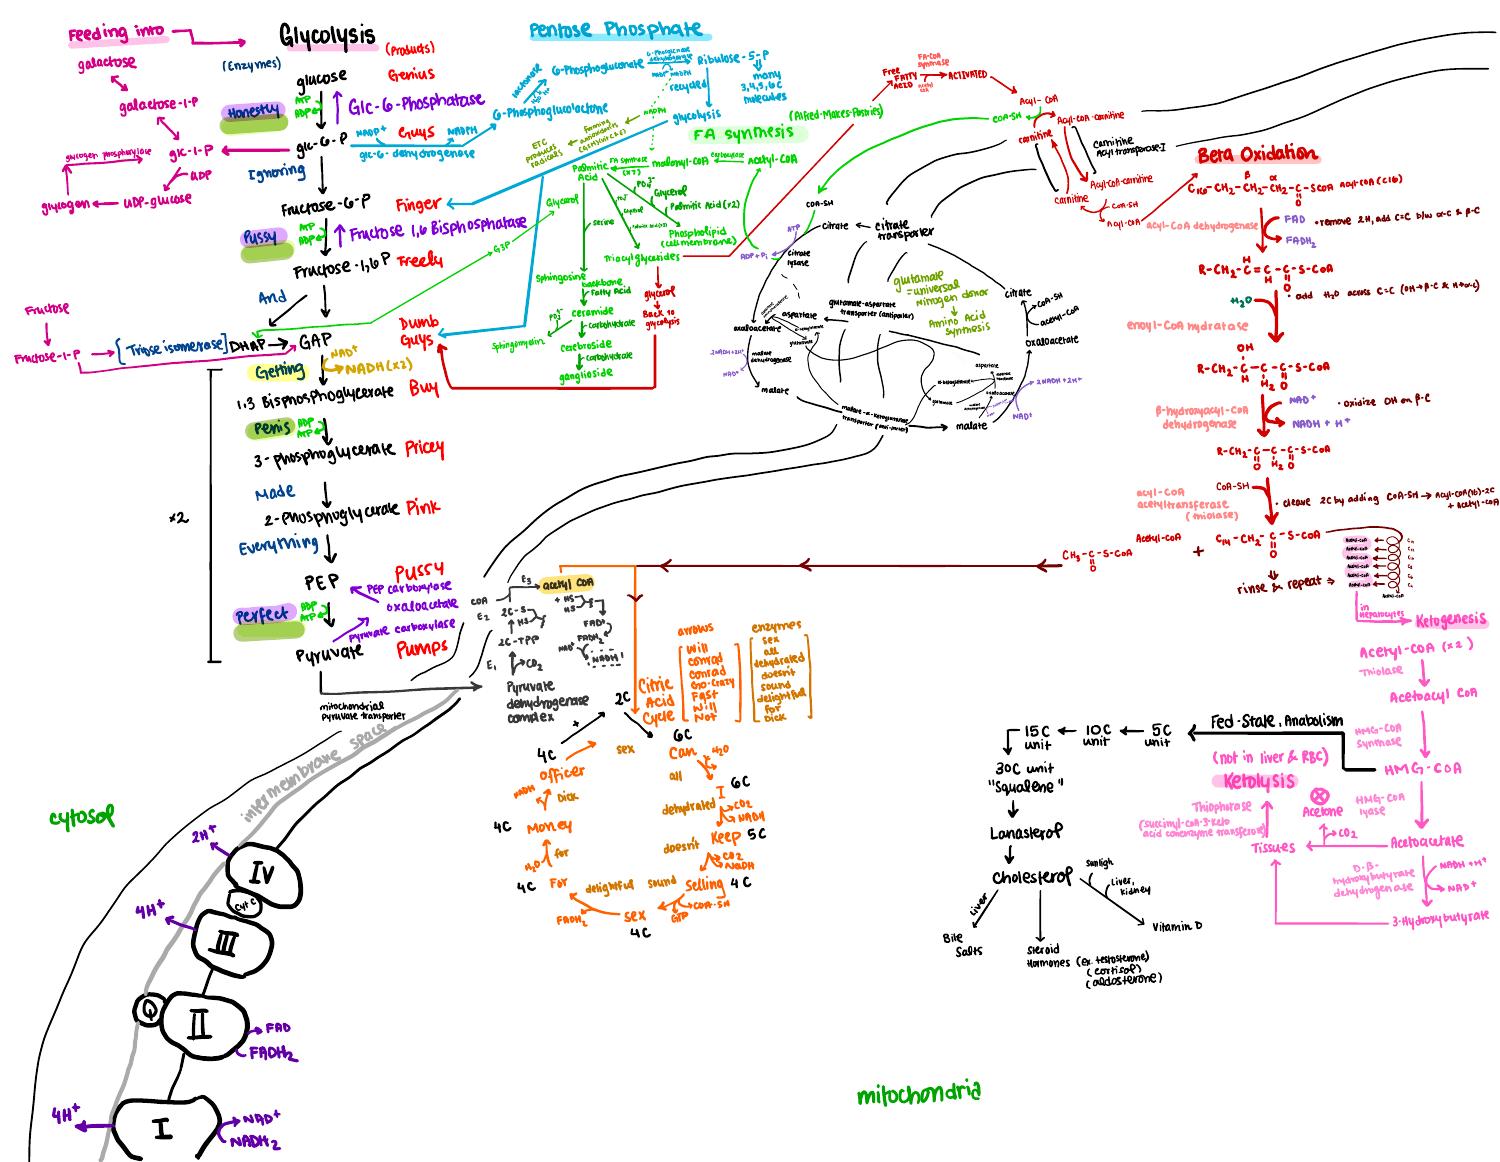 Feeding into
galactose
galactose-1-P
glc-1-P
UDP
glycogen phosphorylase
glycogen
UDP-glucose
Fructose
Fructose-1-P
Glycolysis
(Products)
(Enzymes)
glucose
Genius
Honestly
ATP
ADP
Glc-6-Phosphatase
glc-6-P
Guys
NADP+
NADPH
glc-6-dehydrogenase
Ignoring
Fructose-6-P
Finger
Pussy
ATP
ADP
Fructose 1,6 Bisphosphatase
Fructose-1,6 P
Freely
And
[Triose isomerase]
DHAP
GAP
Dumb
Guys
Getting
NAD+
NADH (x2)
1,3 Bisphosphoglycerate
Buy
Penis
ADP
ATP
3-phosphoglycerate
Pricey
Made
2-phosphoglycerate
Pink
Everything
PEP
Pussy
PEP carboxylase
oxaloacetate
Perfect
ADP
ATP
Pyruvate carboxylase
Pyruvate
Pumps
x2
mitochondrial
Pyruvate transporter
Pentose Phosphate
lactonase
6-Phosphoglucolactone
6-Phosphogluconate
Ribulose-5-P
many
3,4,5,6 C
molecules
recycled
glycolysis
NADPH
ETC
produces
radicals
FA synthesis
(Alfred-Makes-Pastries)
Palmitic
Acid
FA synthase
(x7)
malonyl-CoA
acetyl-CoA
Glycerol
Serine
PO4-
Glycerol
Palmitic Acid (x2)
Phospholipid
(cell membrane)
Triacylglycerides
G3P
Sphingosine
backbone
Fatty Acid
ceramide
PO4-
Sphingomyelin
carbohydrate
cerebroside
carbohydrate
ganglioside
glycerol
Back to
glycolysis
Free
FATTY
ACID
FA-CoA
synthase
ACTIVATED
Acyl-CoA
COA-SH
Acyl-CoA-carnitine
carnitine
Carnitine
Acyltransperase-I
Acyl-CoA-carnitine
carnitine
COA-SH
Acyl-CoA
COA-SH
ATP
Citrate
citrate
transporter
ADP + Pi
citrate
lyase
oxaloacetate
aspartate
glutamate-aspartate
transporter (antiporter)
malate
dehydrogenase
NAD+
malate
malate-α-ketoglutarate
transporter (antiporter)
malate
NAD+
2 NADH + 2H+
aspartate
glutamate
=universal
nitrogen donor
Amino Acid
synthesis
citrate
COA-SH
acetyl-CoA
oxaloacetate
Beta Oxidation
β α
C16-CH2-CH2-CH2-C-SCOA acyl-CoA (C16)
O
acyl-CoA dehydrogenase
FAD
FADH2
• remove 2H, add C=C b/w α-C & β-C
R-CH2-C=C-C-S-CoA
H2O
enoyl-CoA hydratase
OH
R-CH2-C-C-C-S-CoA
β-hydroxyacyl-CoA
dehydrogenase
NAD+
NADH + H+
• oxidize OH on β-C
R-CH2-C-C-C-S-CoA
COA-SH
acyl-CoA
acetyltransferase
(thiolase)
• cleave 2C by adding COA-SH → Acyl-CoA(16)-2C
+ Acetyl-COA
CH3-C-S-COA
Acetyl-COA
+
C14-CH2-C-S-COA
rinse & repeat
in
hepatocytes
Ketogenesis
Acetyl-COA (x2)
Thiolase
Acetoacyl COA
HMG-COA
synthase
HMG-COA
HMG-COA
lyase
Acetoacetate
CO2
Acetone
D-β-
hydroxybutyrate
dehydrogenase
NADH + H+
NAD+
3-Hydroxybutyrate
(not in liver & RBC)
Ketolysis
Thiophorase
(succinyl-CoA-3-keto
acid coenzyme transferase)
Tissues
Fed-State, Anabolism
5C
unit
10C
unit
15C
unit
30C unit
"Squalene"
Lanasterol
Cholesterol
Liver
Bile
Salts
Steroid
Hormones (ex. testosterone)
(cortisol)
(aldosterone)
Sunligh
Liver,
kidney
Vitamin D
COA
E3
acetyl COA
E2
2C-S
HS
2C-TPP
E1
CO2
FAD+
FADH2
NAD+
NADH
Pyruvate
dehydrogenase
complex
Citric
Acid
Cycle
arrows
Will
conrad
conrad
Go-crazy
Fast
Will
Not
enzymes
sex
all
dehydrated
doesn't
sound
delightful
for
Dick
2C
+
4C
officer
sex
6C
Can
H2O
all
I
6C
dehydrated
CO2
NADH
Keep
5C
doesn't
CO2
NADH
Selling
4C
sound
COA-SH
GTP
sex
4C
delightful
FADH2
For
4C
H2O
for
Money
4C
Dick
NADH
cytosol
intermembrane space
2H+
IV
Cyt C
4H+
III
Q
II
FAD
FADH2
4H+
I
NAD+
NADH2
mitochondria